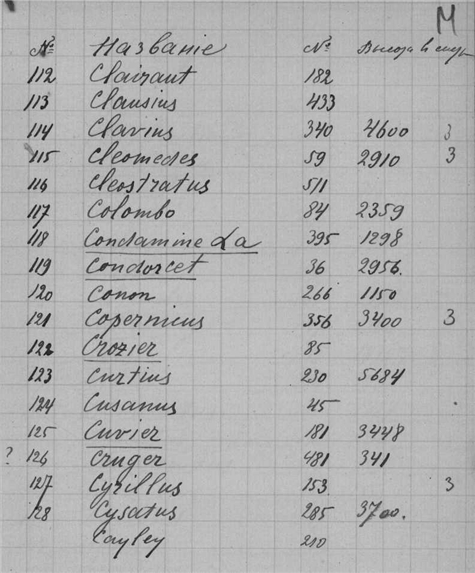 М
№ Название № Высота в
112 Clairaut 182
113 Clausius 433
114 Clavius 340 4600 3
115 Cleomedes 59 2910 3
116 Cleostratus 511
117 Colombo 84 2359
118 Condamine La 395 1298
119 Condorcet 36 2956.
120 Conon 266 1150
121 Copernicus 356 3400 3
122 Crozier 85
123 Curtius 230 5684
124 Cusanus 45
125 Cuvier 181 3448
? 126 Cruger 481 341
127 Cyrillus 153 3
128 Cysatus 285 3700.
Cayley 210